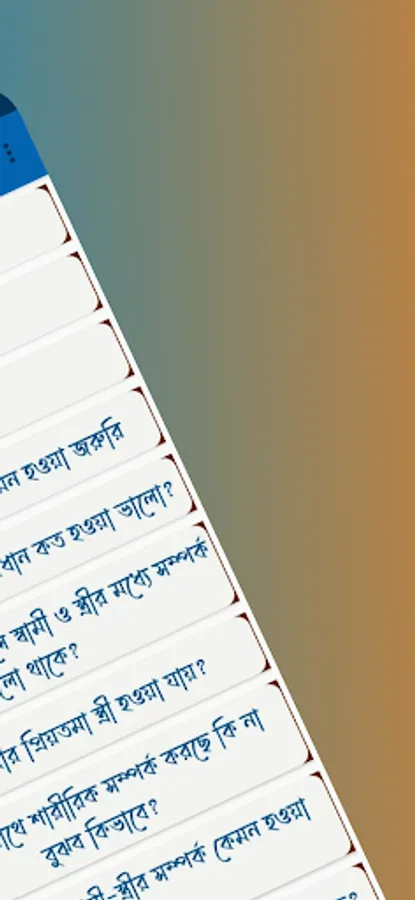 হওয়া জরুরি
কত হওয়া ভালো?
স্বামী ও স্ত্রীর মধ্যে সম্পর্ক
থাকে?
প্রিয়তমা স্ত্রী হওয়া যায়?
শারীরিক সম্পর্ক করছে কি না
বুঝব কিভাবে?
সম্পর্ক কেমন হওয়া